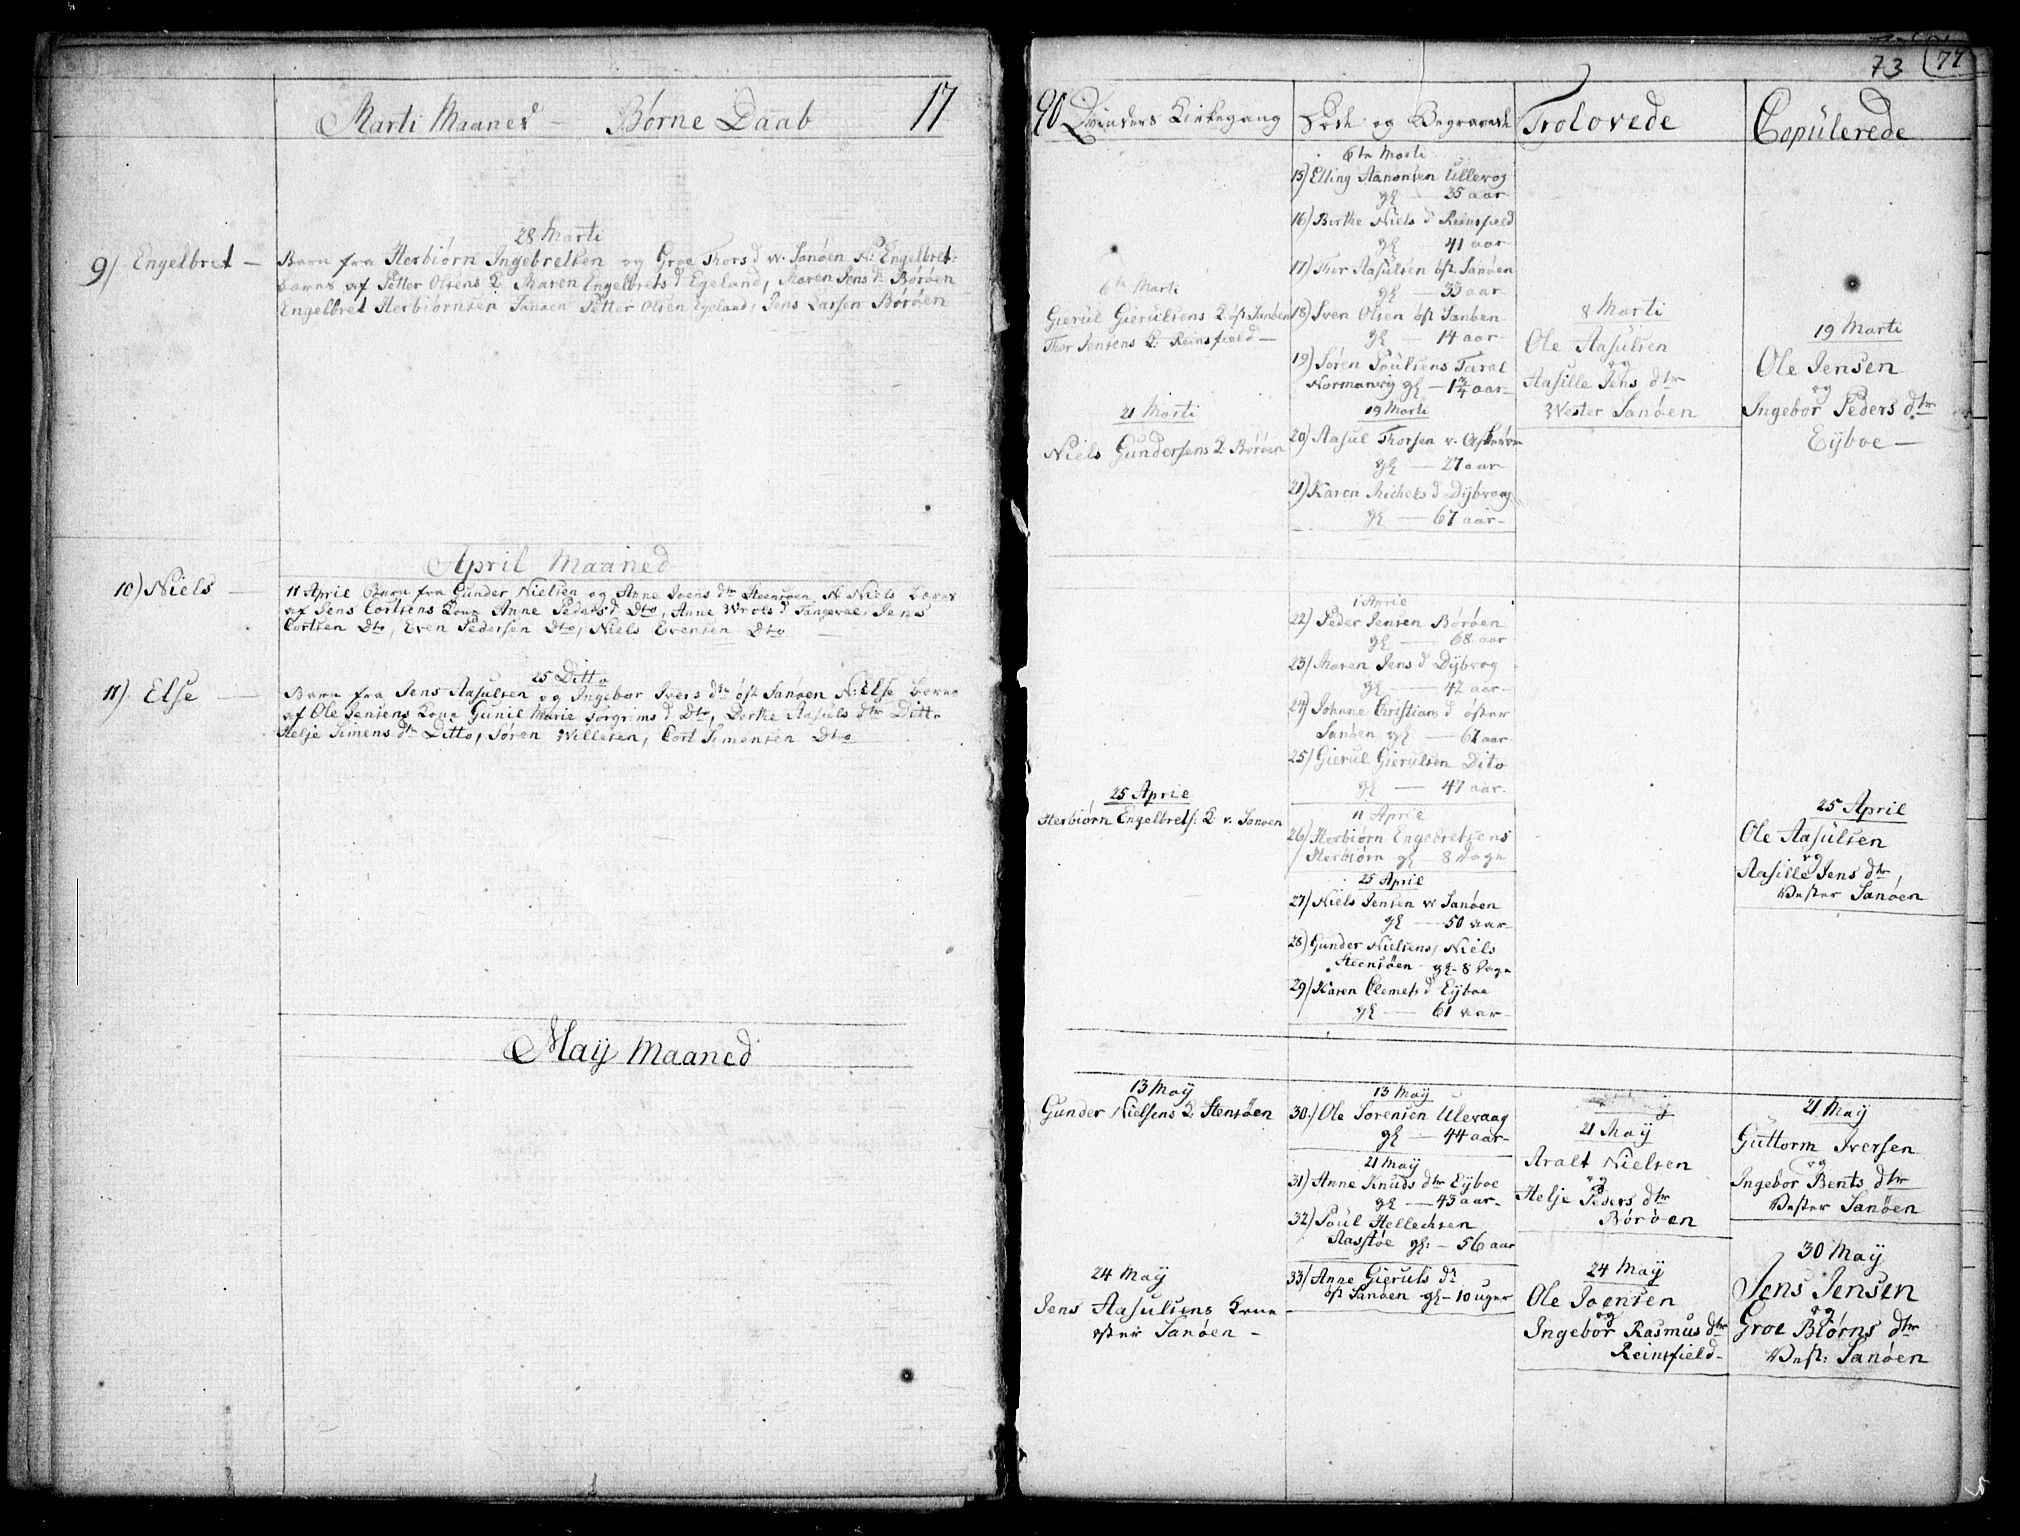 Marti Maaned — Børne Daab 17
28 Marti
9) Engelbret — Barn fra Herbiørn Ingebretsen og Groe Thors d. w. Sanøen N: Engelbret:
baaret af Petter Olsens K. Maren Engelbrets d Egeland, Maren Jens d. Børøen
Engelbret Herbiørnsen Sanøen Petter Olsen Egeland, Jens Larsen Børøen
April Maaned
10) Niels — 11 April Barn fra Gunder Nielsen og Anne Joens dtr Steensøen N. Niels baaret
af Jens Cortsens Kone Anne Peders d. Dto, Anne Wrols d Tangevae, Jens
Cortsen Dto, Even Pedersen Dto, Niels Evensen Dto —
25 Ditto
11) Else — Barn fra Jens Aasulsen og Ingebor Ivers dtr øst Sanøen N: Else baaret
af Ole Jensens Kone Gunil Marie Torgrims d Dto, Dorthe Aasuls dtr Ditto
Helje Simens dtr Ditto, Søren Willesen, Cort Simensen Dto
May Maaned
73 77
90 Qvinders Kirkegang
6te Marti
Gierul Gierulsens K øst Sanøen
Thor Jensens K: Reinsfield —
21 Marti
Niels Gundersens K. Børøen
25 April
Herbiørn Engelbrets: K v. Sanøen
13 May
Gunder Nielsens K. Stensøen
24 May
Jens Aasulsens Kone
øster Sanøen —
Døde og Begravede
6te Marti
15) Elling Aanonsen Ullevog
gl — 35 aar
16) Birthe Niels d Reinsfield
gl 41 aar
17) Thor Aasulsen øst Sanøen
gl — 33 aar
18) Sven Olsen øst Sanøen
gl — 14 aar
19) Søren Poulsens Taral
Normanvig gl — 1 3/4 aar
19 Marti
20) Aasul Thorsen v. Askerøe
gl — 27 aar
21) Karen Michels d Dybvaag
gl — 67 aar
1 April
22) Peder Jensen Børøen
gl — 68 aar
23) Maren Jens d Dybvog
gl — 42 aar
24) Johane Christians d øster
Sanøen gl — 67 aar
25) Gierul Gierulsen Dito
gl — 47 aar
11 April
26) Herbiørn Engebretsens
Herbiørn gl — 8 Dage
25 April
27) Niels Jensen w Sanøen
gl — 50 aar
28) Gunder Nielsens, Niels
Steensøen gl — 8 Dage
29) Karen Clemets d Eyboe
gl — 61 aar
13 May
30) Ole Sørensen Ulevaag
gl — 44 aar
21 May
31) Anne Knuds dtr Eyboe
gl — 43 aar
32) Poul Hellechsen
Aasstøe gl: — 56 aar
33) Anne Gieruls dr
øst Sanøen gl — 10 uger
Trolovede
8 Marti
Ole Aasulsen
og
Aasille Jens dtr
Wester Sanøen
21 May
Aralt Nielsen
og
Helje Peders dtr
Børøen
24 May
Ole Joensen
og
Ingebor Rasmus dtr
Reinsfield
Copulerede
19 Marti
Ole Jensen
og
Ingebor Peders dtr
Eyboe —
25 April
Ole Aasulsen
og
Aasille Jens dtr,
Vester Sanøen
21 May
Guttorm Iversen
og
Ingebor Bents dtr
Vester Sanøen
30 May
Jens Jensen
og
Groe Biørns dtr
Vest: Sanøen